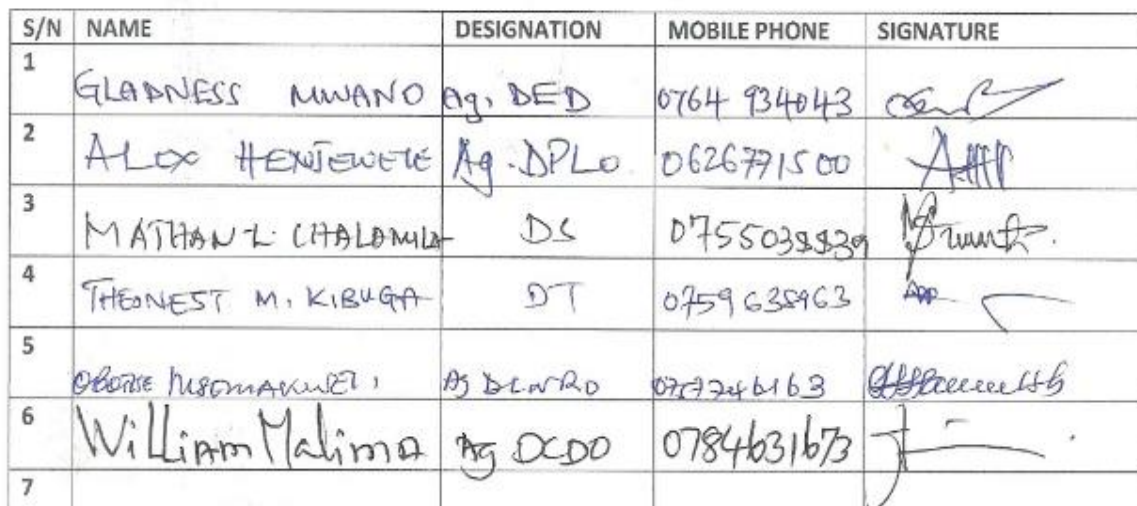 S/N NAME DESIGNATION MOBILE PHONE SIGNATURE
1 GLADNESS MWANO Ag. DED 0764 934043
2 ALEX HENJEWELE Ag. DPLO 0626771500
3 MATHAN L. CHALAMILA DS
4 THEONEST M. KIBUGA DT 0759638963
5 Ag
6 William Malima Ag DCDO 0784631673
7